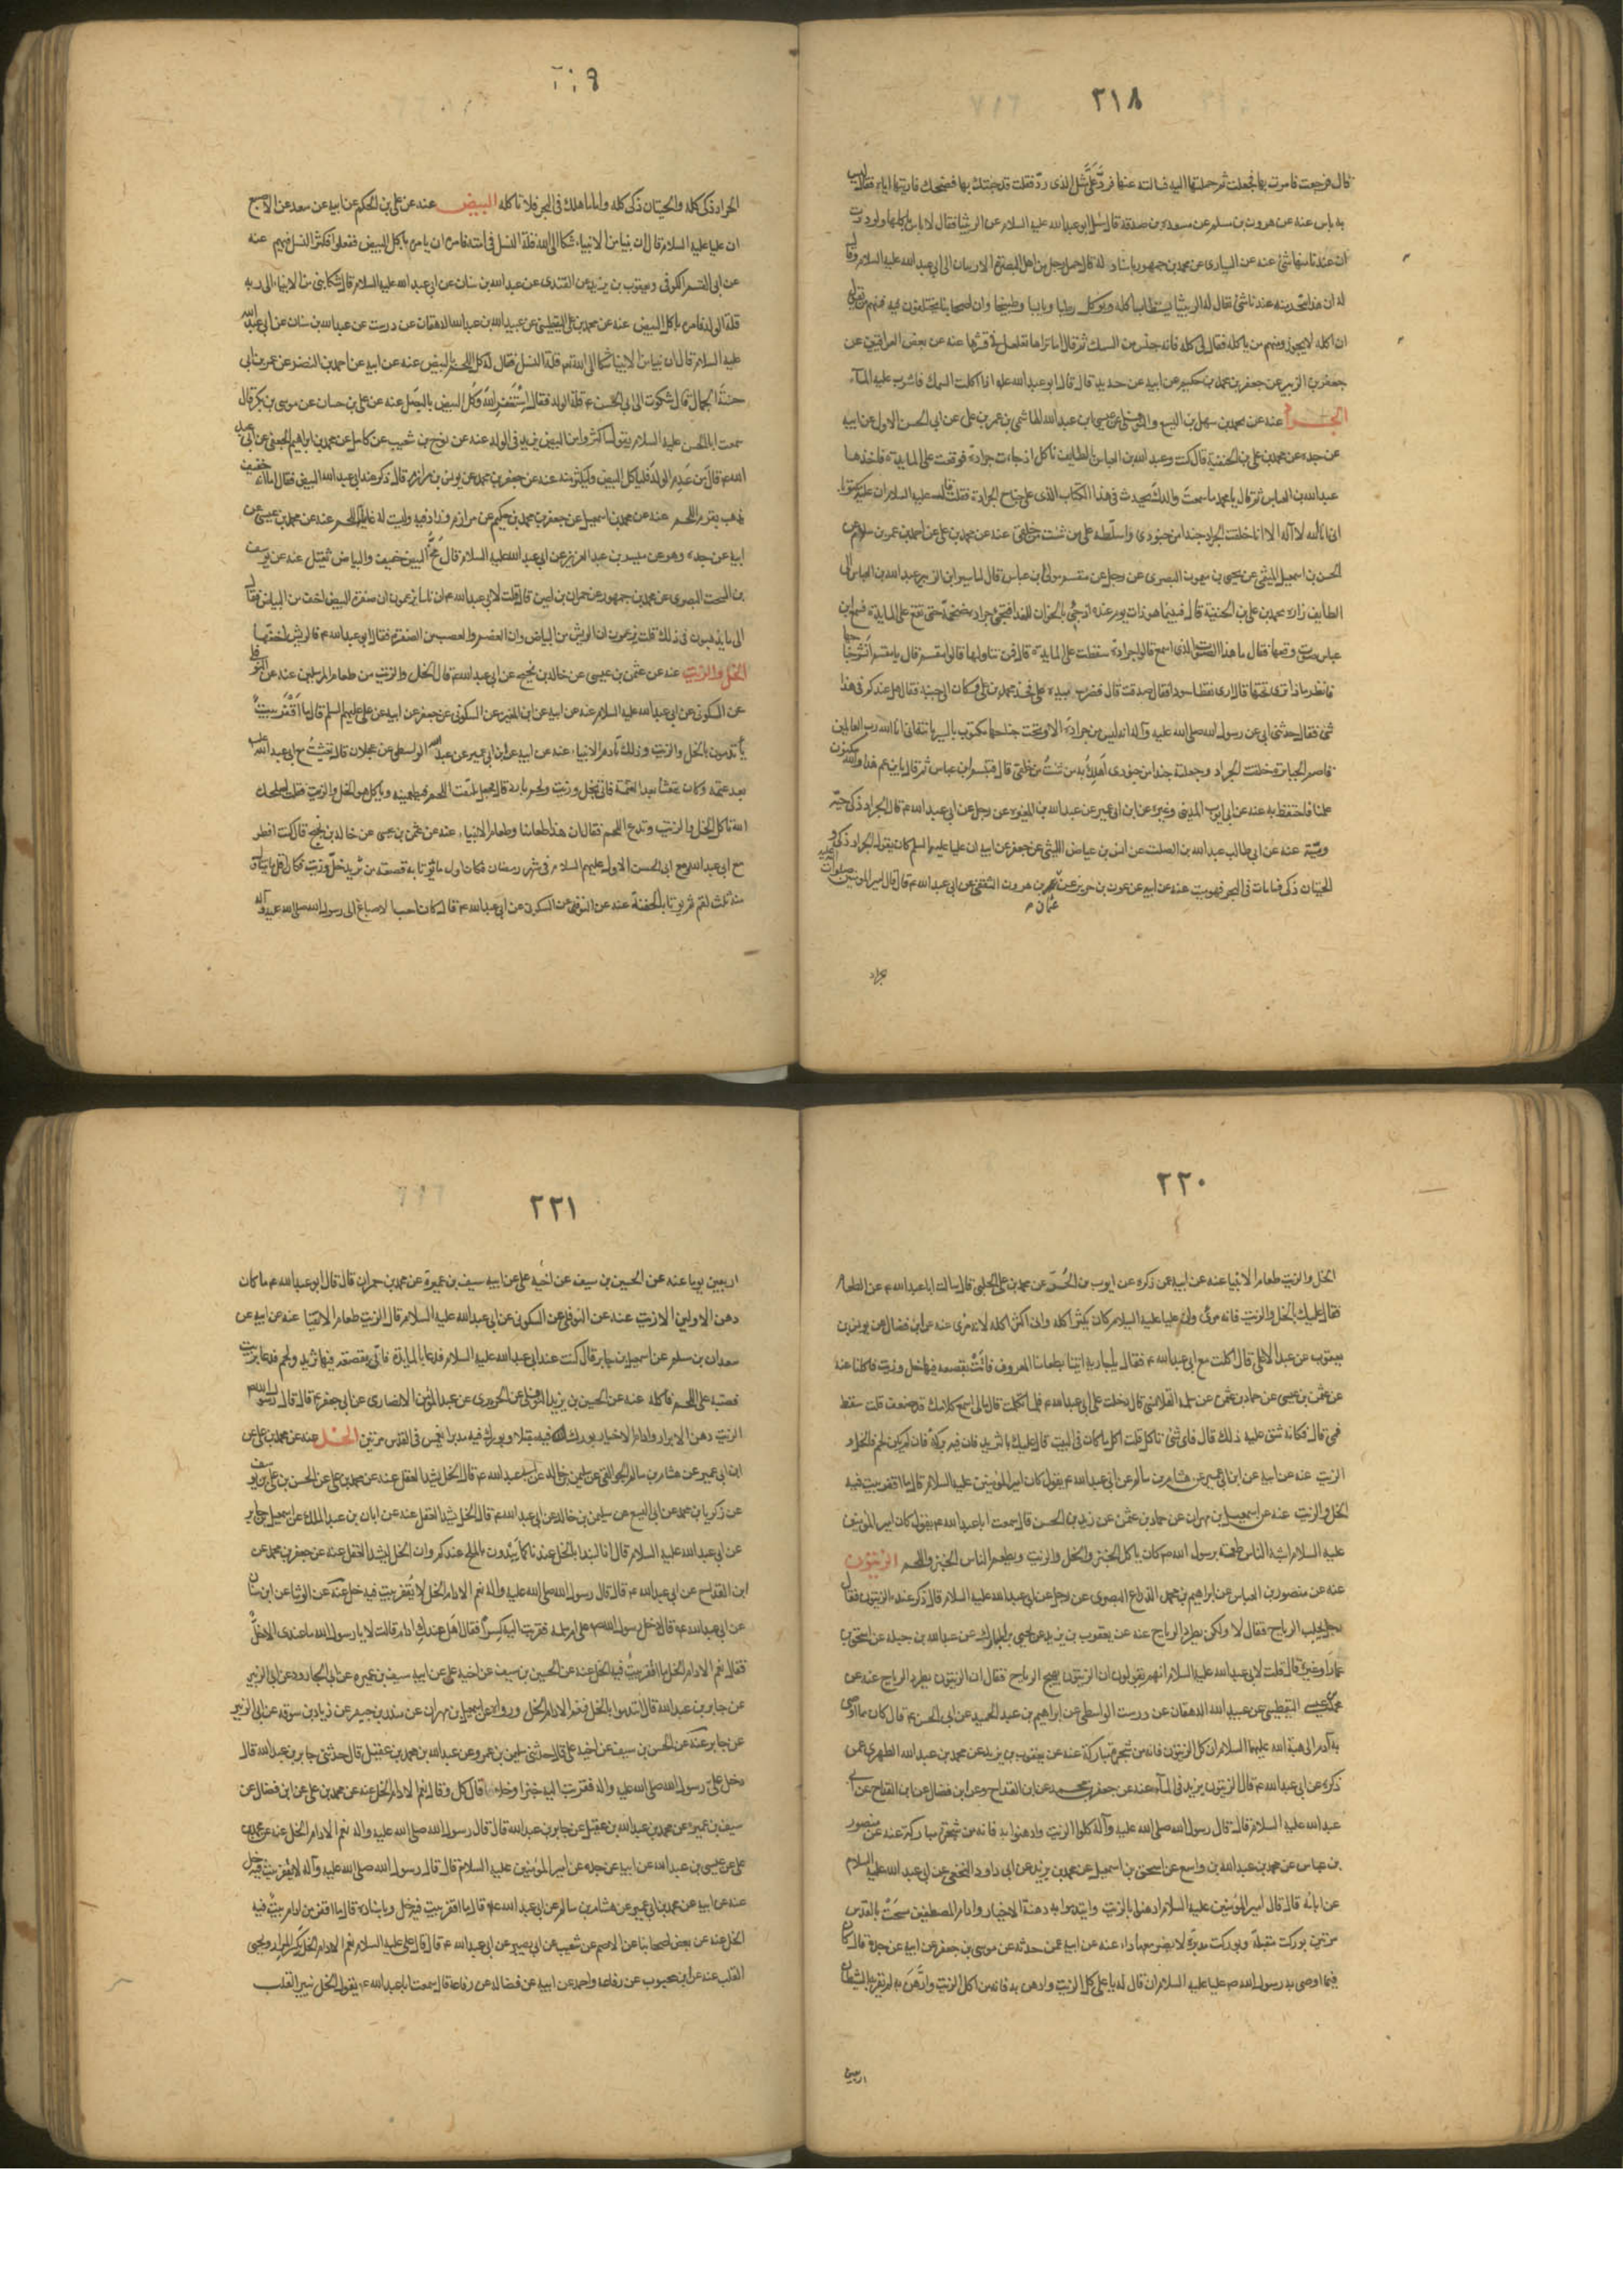 ٢١٨
قال فرجعت فامرت بها فجعلت ثم حملتها اليه فسالته عنها فردّ عَلَىَّ مثل الذى ردّ فقلت قد جئتك بها فضحك فاريتها اياه فقال ليس
به باس عنه عن هرون بن مسلم عن مسعدة بن صدقة قال سئل ابو عبد الله عليه السلام عن الربيثا فقال لا باس باكلها ولوددت
ان عندنا منها شئ عنه عن السيارى عن محمد بن جمهور باسناد له قال حمل رجل من اهل البصرة الاربيان الى ابى عبد الله عليه السلام وقال
له ان هذا يتخذ منه عندنا شئ يقال له الربيثا يستطاب اكله ويوكل رطبا ويابسا وطبيخا وان اصحابنا يختلفون فيه فمنهم من يقول
ان اكله لا يجوز ومنهم من ياكله فقال لى كله فانه جنس من السمك ثم قال اما تراها تقلقل فى قشرها عنه عن بعض العراقيين عن
جعفر بن الزبير عن جعفر بن محمد بن حكيم عن ابيه عن حديد قال قال ابو عبد الله عليه اذا اكلت السمك فاشرب عليه المآء
الجراد عنه عن محمد بن سهل بن اليسع والنوفلى عن عيسى ابن عبد الله الهاشمى بن عمر بن على عن ابى الحسن الاول عن ابيه
عن جده عن محمد بن على بن الحنفية قال كنت وعبد الله بن العباس بالطايف ناكل اذ جاءت جرادة فوقعت على المايدة فاخذها
عبد الله بن العباس ثم قال يا محمد ما سمعتَ والدكَ يحدث فى هذا الكتاب الذى على جناح الجرادة فقلت قال عليه السلام ان عليه مكتوبا
انى انا الله لا اله الا انا خلقت الجراد جندا من جنودى واسلّطه على من شئت من خلقى عنه عن محمد بن على عن احمد بن عمر بن سلام عن
الحسن بن اسمعيل الميثمى عن يحيى بن ميمون البصرى عن رجل عن مقسم مولى ابن عباس قال لما سير ابن الزبير عبد الله بن العباس الى
الطايف زاره محمد بن على بن الحنفية قال فبينما هو ذات يوم عنده اذ جئ بالخوان للغدا فيجئ جرادة ضخمة حتى تقع على المايدة فسمع ابن
عباس صوت وقعها فقال ما هذا الصوت الذى اسمع قالوا جرادة سقطت على المايدة قال فمن تناولها قالوا مقسم قال يا مقسم انشر جناحها
فانظر ماذا ترى تحتها قال ارى نقطا سودا فقال صدقت قال فضرب بيده على فخذ محمد بن على وكان الى جنبه فقال هل عندكم فى هذا
شئ فقال حدثنى ابى عن رسول الله صلى الله عليه وآله انه ليس من جرادة الا وتحت جناحها مكتوب بالسريانية انى انا الله رب العالمين
قاصم الجبابرة خلقت الجراد وجعلته جندا من جنودى اُهلك به من شئتُ من خلقى قال فتبسم ابن عباس ثم قال يا بن عم هذا والله مكنون
علمنا فاحتفظ به عنه عن ابى ايوب المدينى وغيره عن ابن ابى عمير عن عبد الله بن المغيرة عن رجل عن ابى عبد الله ع قال الجراد ذكى حيّه
وميّته عنه عن ابى طالب عبد الله بن الصلت عن انس بن عياض الليثى عن جعفر عن ابيه ان عليا عليه السلم كان يقول الجراد ذكى و
الحيتان ذكى فما مات فى البحر فهو ميت عنه عن ابيه عن عون بن حريز عن عمر بن هرون الثقفى عن ابى عبد الله ع قال قال امير المومنين صلوات الله عليه
الجراد
الجراد ذكى كله والحيتان ذكى كله واما ما هلك فى البحر فلا تاكله البيض عنه عن على بن الحكم عن ابيه عن سعد عن الاصبغ
ان عليا عليه السلام قال ان نبيا من الانبياء شكا الى الله قلة النسل فى امته فامره ان يامرهم باكل البيض ففعلوا فكثر النسل فيهم عنه
عن ابى القسم الكوفى ويعقوب بن يزيد عن القندى عن عبد الله بن سنان عن ابى عبد الله عليه السلام قال شكا نبى من الانبياء الى ربه
قلة الولد فامره باكل البيض عنه عن محمد بن على اليقطينى عن عبيد الله بن عبد الله الدهقان عن درست عن عبد الله بن سنان عن ابى عبد الله
عليه السلام قال ان نبيا من الانبياء شكا الى الله قلة النسل فقال له كل اللحم بالبيض عنه عن ابيه عن احمد بن النضر عن عمر بن ابى
حسنة الجمال قال شكوت الى ابى الحسن ع قلة الولد فقال اِستَغفر الله وَكُلِ البيض بالبصل عنه عن على بن حسان عن موسى بن بكر قال
سمعت ابا الحسن عليه السلام يقول اكثروا من البيض فانه يزيد فى الولد عنه عن نوح بن شعيب عن كامل عن محمد بن ابراهيم الجعفى عن ابى عبد
الله ع قال من عَدِمَ الولد فلياكل البيض وليكثر منه عنه عن جعفر بن محمد عن يونس بن مرازم قال ذكر عند ابى عبد الله البيض فقال اما انه خفيف
يذهب بقرم اللحم عنه عن محمد بن اسمعيل عن جعفر بن محمد بن حكيم عن مرازم وزاد فيه وليست له غايلة اللحم عنه عن محمد بن عيسى عن
ابيه عن جده وهو عن ميسر بن عبد العزيز عن ابى عبد الله عليه السلام قال مُخُّ البيض خفيف والبياض ثقيل عنه عن يوسف
بن السخت البصرى عن محمد بن جمهور عن حمران بن اعين قال قلت لابى عبد الله ع ان ناسا يزعمون ان صفرة البيض اخف من البياض فقال
الى ما يذهبون فى ذلك قلت يزعمون ان الريش من البياض وان العظم والعصب من الصفرة فقال ابو عبد الله ع فالريش اخفها
الخل والزيت عنه عن عثمن بن عيسى عن خالد بن نجيح عن ابى عبد الله ع قال الخل والزيت من طعام المرسلين عنه عن النوفلى
عن السكونى عن ابى عبد الله عليه السلام عنه عن ابيه عن ابن المغيرة عن السكونى عن جعفر عن ابيه عن على عليهم السلم قال ما اَقْفَر بيتٌ
يأتدمون بالخل والزيت وذلك ادام الانبياء عنه عن ابيه عن ابن ابى عمير عن عبد الله الواسطى عن عجلان قال تعشيتُ مع ابى عبد الله ع
بعد عتمة وكان يتعشا بعد العتمة فاتى بخل وزيت ولحم بارد قال فجعل ينتف اللحم فيطعمنيه وياكل هو الخل والزيت فقلت اصلحك
الله تاكل الخل والزيت وتدع اللحم فقال ان هذا طعامنا وطعام الانبياء عنه عن عثمن بن عيسى عن خالد بن نجيح قال كنت افطر
مع ابى عبد الله ومع ابى الحسن الاول عليهم السلام فى شهر رمضان فكان اول ما يؤتا به قصعة من ثريد خلّ وزيت فكان اقل ما يتناول
منه ثلث لقم ثم يوتا بالجفنة عنه عن النوفلى عن السكونى عن ابى عبد الله ع قال كان احب الاصباغ الى رسول الله صلى الله عليه وآله
٢٢٠
الخل والزيت طعام الانبيا عنه عن ابيه عن ذكره عن ايوب بن الحُرّ عن محمد بن على الحلبى قال سالت ابا عبد الله ع عن الطعام
فقال عليك بالخل والزيت فانه مرئ وان عليا عليه السلام كان يكثر اكله وانى اكثر اكله لانه مرئ عنه عن ابن فضال عن يونس بن
يعقوب عن عبد الاعلى قال اكلت مع ابى عبد الله ع فقال يا جارية ايتينا بطعامنا المعروف فاتَتْ بقصعة فيها خل وزيت فاكلنا عنه
عن عثمن بن عيسى عن حماد بن عثمن عن سلمة القلانسى قال دخلت على ابى عبد الله ع فلما تكلمت قال مالى اسمع كلامك قد ضعف قلت سقط
فمى قال فكانه شق عليه ذلك قال فاى شئ تاكل قلت اكل ما كان فى البيت قال عليك بالثريد فان فيه بركة فان لم يكن لحم فالخل و
الزيت عنه عن ابيه عن ابن ابى عمير عن هشام بن سالم عن ابى عبد الله ع يقول كان امير المومنين عليه السلام قال ما اقفر بيت فيه
الخل والزيت عنه عن اسمعيل بن مهران عن حماد بن عثمن عن زيد بن الحسن قال سمعت ابا عبد الله ع يقول كان امير المومنين
عليه السلام اشبه الناس طعمة برسول الله ص كان ياكل الخبز والخل والزيت ويطعم الناس الخبز واللحم الزيتون
عنه عن منصور بن العباس عن ابراهيم بن محمد الذراع البصرى عن رجل عن ابى عبد الله عليه السلام قال ذكر عنده الزيتون فقال
رجل يجلب الرياح فقال لا ولكن يطرد الرياح عنه عن يعقوب بن يزيد عن يحيى بن المبارك عن عبد الله بن جبلة عن اسحق بن
عمار او غيره قال قلت لابى عبد الله عليه السلام انهم يقولون ان الزيتون يهيج الرياح فقال ان الزيتون يطرد الرياح عنه عن
محمد بن عيسى اليقطينى عن عبيد الله الدهقان عن درست الواسطى عن ابراهيم بن عبد الحميد عن ابى الحسن ع قال كان مما اوصى
به آدم الى هبة الله عليهما السلام ان كل الزيتون فانه من شجرة مباركة عنه عن يعقوب بن يزيد عن محمد بن عبد الله الطهرى عمن
ذكره عن ابى عبد الله ع قال الزيتون يزيد فى المآء عنه عن جعفر بن محمد عن ابن القداح وعن ابن فضال عن ابن القداح عن ابى
عبد الله عليه السلام قال قال رسول الله صلى الله عليه وآله كلوا الزيت وادهنوا به فانه من شجرة مباركة عنه عن منصور
بن عباس عن محمد بن عبد الله بن واسع عن اسحق بن اسمعيل عن محمد بن يزيد عن ابى داود النخعى عن ابى عبد الله عليه السلام
عن ابائه قال قال امير المومنين عليه السلام ادهنوا بالزيت وايتدموا به دهنة الاخيار وادام المصطفين مسحت بالقدس
مرتين بوركت مقبلة وبوركت مدبرة لا يضر معها داء عنه عن ابيه عمن حدثه عن موسى بن جعفر عن ابيه عن جده قال كان
فيما اوصى به رسول الله ص عليا عليه السلام ان قال له يا على كل الزيت وادهن به فانه من اكل الزيت وادَّهَنَ به لم يقربه الشيطان
اربعين
٢٢١
اربعين يوما عنه عن الحسين بن سيف عن اخيه على عن ابيه سيف بن عميرة عن محمد بن حمران قال قال ابو عبد الله ع ما كان
دهن الاولين الا زيت عنه عن النوفلى عن السكونى عن ابى عبد الله عليه السلام قال الزيت طعام الاتقيا عنه عن ابيه عن
سعدان بن مسلم عن اسمعيل بن جابر قال كنت عند ابى عبد الله عليه السلام فدعا بالمايدة فاتى بقصعة فيها ثريد ولحم فدعا بزيت
فصبه على اللحم فاكله عنه عن الحسين بن يزيد النوفلى عن الجريرى عن عبد المؤمن الانصارى عن ابى جعفر ع قال قال رسول الله ص
الزيت دهن الابرار وادام الاخيار بورك فيه مقبلا وبورك فيه مدبرا انغمس فى القدس مرتين الخل عنه عن محمد بن على عن
ابن ابى عمير عن هشام بن سالم الجواليقى عن سليمن بن خالد عن ابى عبد الله ع قال الخل يشد العقل عنه عن محمد بن على عن الحسن بن على بن يوسف
عن زكريا بن محمد عن ابى اليسع عن سليمن بن خالد عن ابى عبد الله ع قال الخل يشد العقل عنه عن ابان بن عبد الملك عن اسمعيل بن جابر
عن ابى عبد الله عليه السلام قال انا لنبدا بالخل عندنا كما يبدون بالملح عندكم وان الخل ليشد العقل عنه عن جعفر بن محمد عن
ابن القداح عن ابى عبد الله ع قال قال رسول الله صلى الله عليه واله نعم الادام الخل لا يُقفر بيت فيه خل عنه عن الوشا عن ابن سنان
عن ابى عبد الله ع قال دخل رسول الله ص على ام سلمة فقربت اليه كسراً فقال هل عندكِ ادام قالت لا يا رسول الله ما عندى الا خلٌّ
فقال نعم الادام الخل ما اقفر بيتٌ فيه الخل عنه عن الحسين بن سيف عن اخيه على عن ابيه سيف بن عميره عن ابى الجارود عن ابى الزبير
عن جابر بن عبد الله قال ائتدموا بالخل فنعم الادام الخل ورواه عن اسمعيل بن مهران عن منذر بن جيفر عن زياد بن سوقه عن ابى الزبير
عن جابر عنه عن الحسن بن سيف عن اخيه على قال حدثنى سليمن بن عمرو عن عبد الله بن محمد بن عقيل قال حدثنى جابر بن عبد الله قال
دخل علىّ رسول الله صلى الله عليه واله فقربت اليه خبزا وخلا قال كل وقال نعم الادام الخل عنه عن محمد بن على عن ابن فضال عن
سيف بن عميره عن محمد بن عبد الله بن عقيل عن جابر بن عبد الله قال قال رسول الله صلى الله عليه واله نعم الادام الخل عنه عن محمد بن
على عن عيسى بن عبد الله عن ابيه عن جده عن امير المؤمنين عليه السلام قال قال رسول الله صلى الله عليه وآله لا يقفر بيت فيه خل
عنه عن ابيه عن محمد بن ابى عمير عن هشام بن سالم عن ابى عبد الله ع قال ما اقفر بيت فيه خل وباسناده قال ما اقفر من ادام بيتٌ فيه
الخل عنه عن بعض اصحابنا عن الاصم عن شعيب عن ابى بصير عن ابى عبد الله ع قال قال على عليه السلام نعم الادام الخل يكسر المرار ويحيى
القلب عنه عن ابن محبوب عن رفاعة واحمد عن ابيه عن فضالة عن رفاعة قال سمعت ابا عبد الله ع يقول الخل ينير القلب